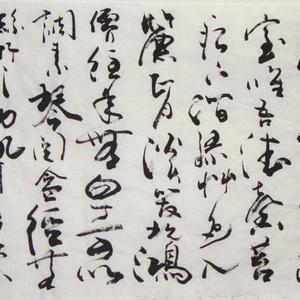 室唯吾德馨苔
痕上階綠草色入
簾青談笑有鴻
儒往來無白丁可以
調素琴閱金經無
絲竹之亂耳